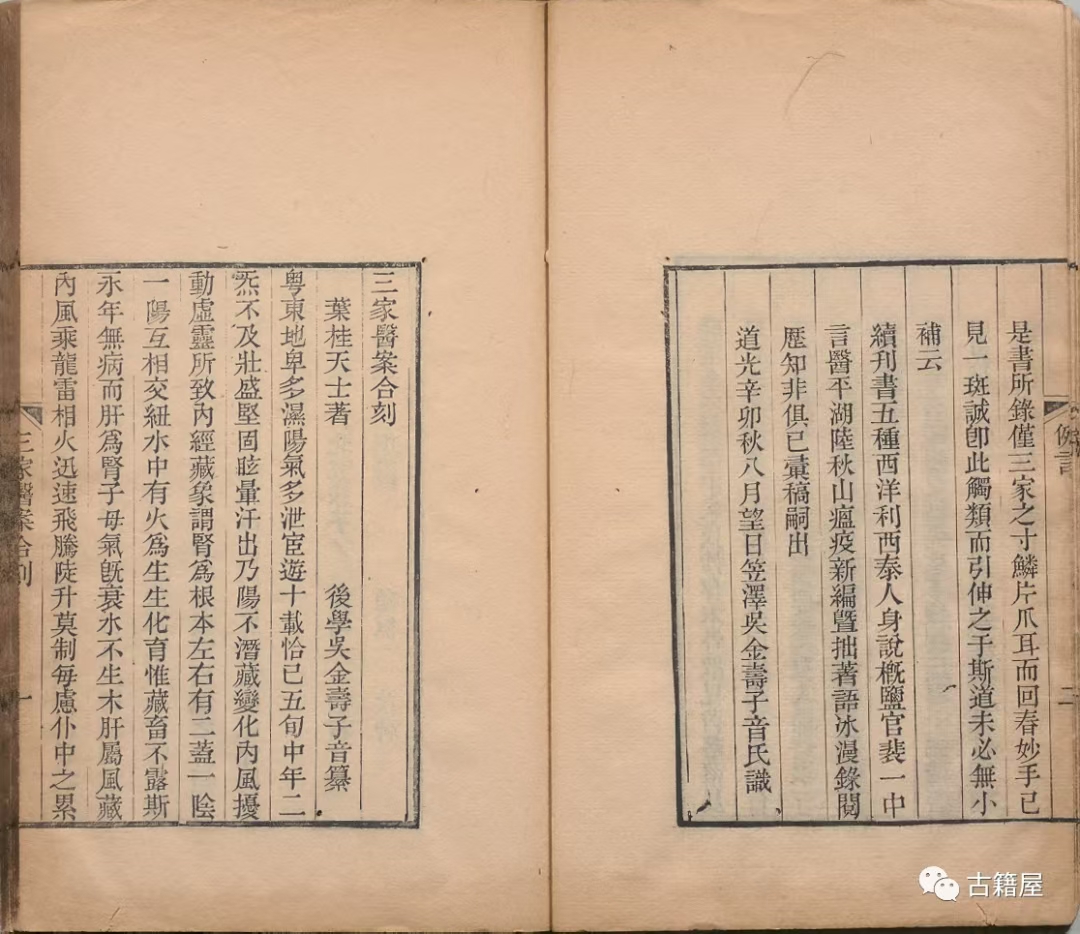 例言
二
是書所錄僅三家之寸鱗片爪耳而回春妙手已
見一斑誠卽此觸類而引伸之于斯道未必無小
補云
續刊書五種西洋利西泰人身說槪鹽官裴一中
言醫平湖陸秋山瘟疫新編曁拙著語冰漫錄閱
歷知非俱已彙稿嗣出
道光辛卯秋八月望日笠澤吳金壽子音氏識
三家醫案合刻
葉桂天士著 後學吳金壽子音纂
粵東地卑多濕陽氣多泄宦遊十載恰已五旬中年二
炁不及壯盛堅固眩暈汗出乃陽不潛藏變化內風擾
動虛靈所致內經藏象謂腎爲根本左右有二蓋一陰
一陽互相交紐水中有火爲生生化育惟藏畜不露斯
永年無病而肝爲腎子母氣旣衰水不生木肝屬風藏
內風乘龍雷相火迅速飛騰陡升莫制每慮仆中之累
三家醫案合刻
一
古籍屋